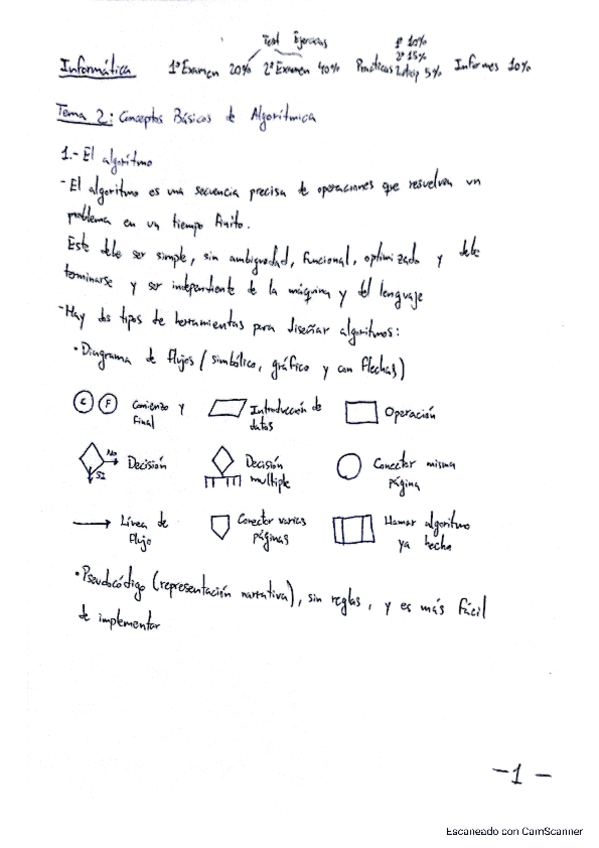 Test Ejercicios
1º 10%
2º 15%
Informática 1º Examen 20% 2º Examen 40% Practicas 5% Informes 10%
Tema 2: Conceptos Básicos de Algorítmica
1.- El algoritmo
-El algoritmo es una secuencia precisa de operaciones que resuelven un
problema en un tiempo finito.
Este debe ser simple, sin ambiguedad, funcional, optimizado y debe
terminarse y ser independiente de la máquina y del lenguaje
-Hay dos tipos de herramientas para diseñar algoritmos:
•Diagrama de flujos (simbólico, gráfico y con flechas)
C F Comienzo y
final
Introducción de
datos
Operación
No
SI
Decisión
Decisión
multiple
Conector misma
página
Línea de
flujo
Conector varias
páginas
Llamar algoritmo
ya hecho
•Pseudocódigo (representación narrativa), sin reglas, y es más fácil
de implementar
-1-
Escaneado con CamScanner